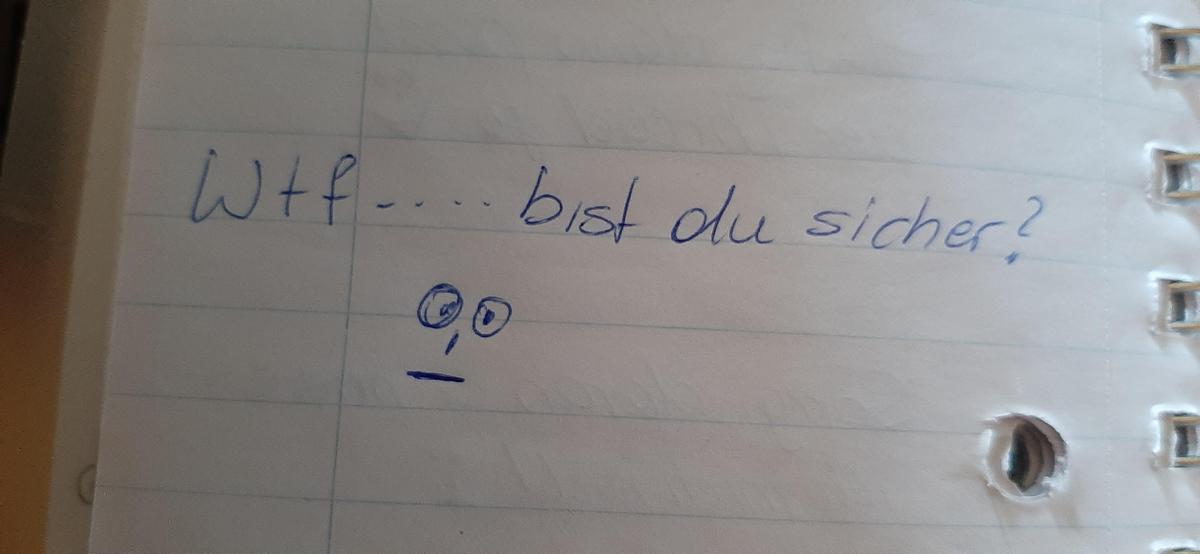 Wtf.... bist du sicher?